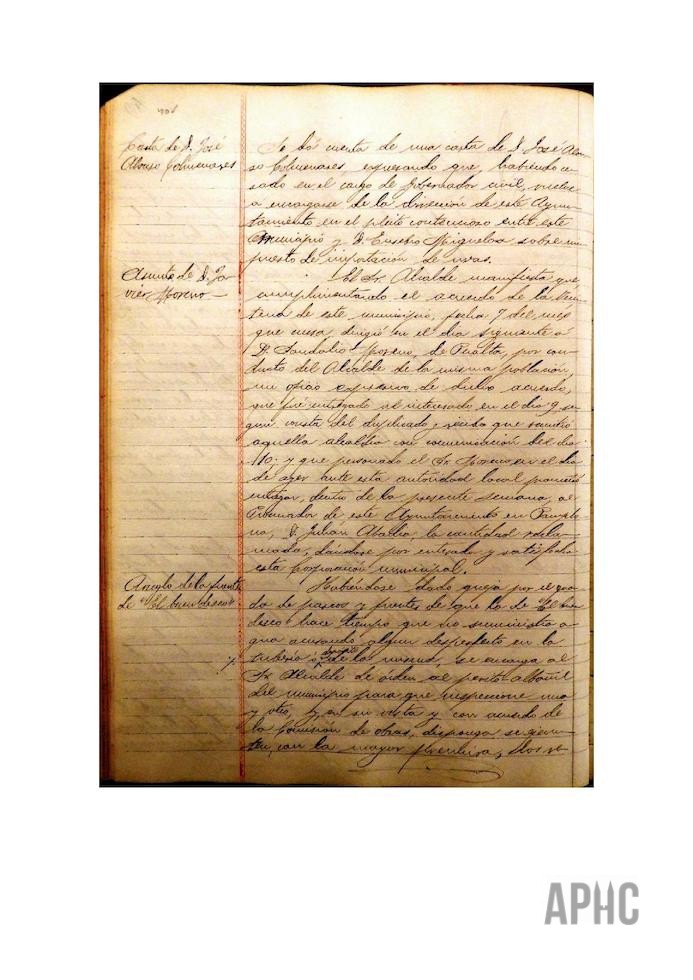 Carta de D. José
Alonso Colmenares
Se dá cuenta de una carta de D. José Alon-
so Colmenares, expresando que, habiendo ce-
sado en el cargo de Gobernador civil, vuelve
a encargarse de la dirección de este Ayun-
tamiento en el pleito contencioso entre este
Municipio y D. Eusebio Miqueloa sobre im-
puesto de importación de uvas.
Asunto de D. Ja-
vier Moreno
El Sr. Alcalde manifiesta que,
cumplimentando el acuerdo de la
de este municipio, fecha 7 del mes
que cursa, dirigió en el día siguiente á
D. Sandalio Moreno, de Peralta, por con-
ducto del Alcalde de la misma población,
un oficio expresivo de dicho acuerdo,
que fué entregado al interesado en el día 9, se-
gún consta del duplicado que remitió
aquella alcaldía con comunicación del día
10. y que personado el Sr. Moreno en el día
de ayer ante esta autoridad local prometió
entregar, dentro de la presente semana, al
Procurador de este Ayuntamiento en Pamplo-
na, D. Julián la cantidad recla-
mada, dándose por enterada y satisfecha
esta Corporación municipal.
Arreglo de la fuente
de "El buen deseo"
Habiéndose dado queja por el guar-
da de paseos y fuentes de que la de "El buen
deseo" hace tiempo que no suministra a-
gua acusando algún desperfecto en la
tubería ó depósito de la misma, se encarga al
Sr. Alcalde dé orden al perito albañil
del municipio para que inspeccione uno
y otro, y, en su vista y con acuerdo de
la Comisión de obras, disponga se ejecu-
ten, con la mayor premura, los re-
APHC